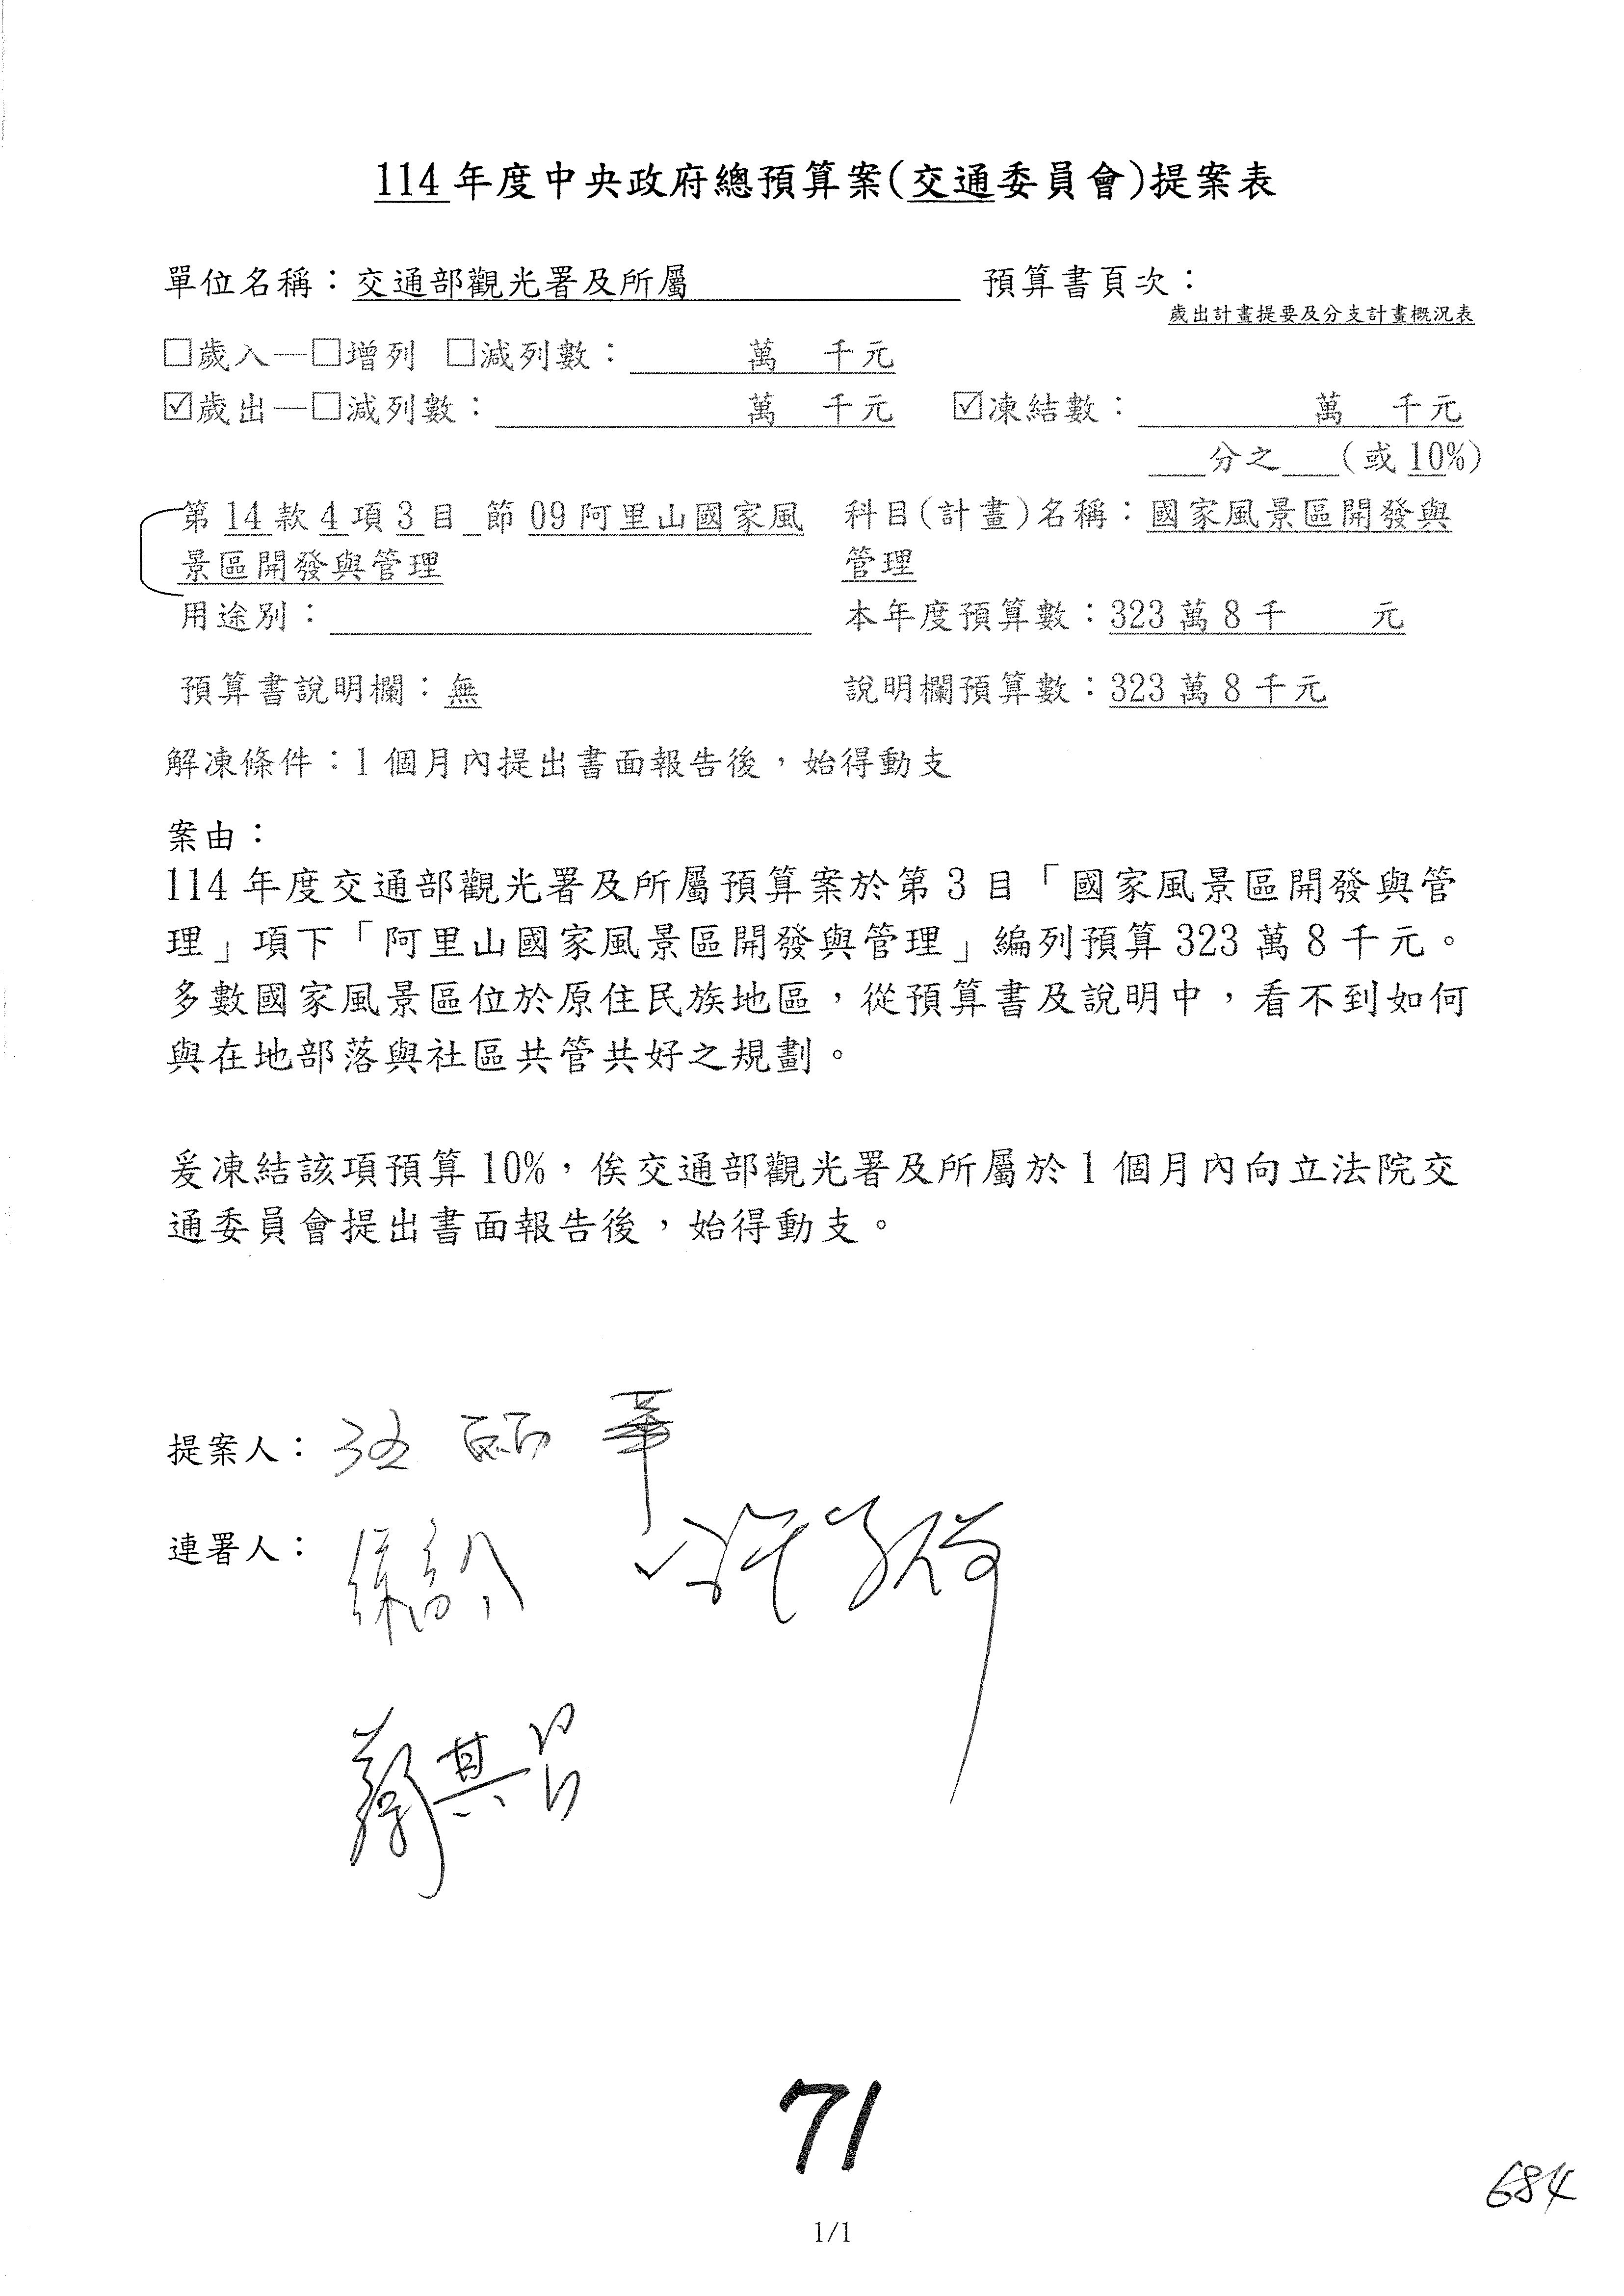 114年度中央政府總預算案(交通委員會)提案表
單位名稱：交通部觀光署及所屬 預算書頁次：
歲出計畫提要及分支計畫概況表
□歲入—□增列 □減列數： 萬 千元
☑歲出—□減列數： 萬 千元 ☑凍結數： 萬 千元
___分之___(或10%)
第14款4項3目_節09阿里山國家風 科目(計畫)名稱：國家風景區開發與
景區開發與管理 管理
用途別： 本年度預算數：323萬8千 元
預算書說明欄：無 說明欄預算數：323萬8千元
解凍條件：1個月內提出書面報告後，始得動支
案由：
114年度交通部觀光署及所屬預算案於第3目「國家風景區開發與管
理」項下「阿里山國家風景區開發與管理」編列預算323萬8千元。
多數國家風景區位於原住民族地區，從預算書及說明中，看不到如何
與在地部落與社區共管共好之規劃。
爰凍結該項預算10%，俟交通部觀光署及所屬於1個月內向立法院交
通委員會提出書面報告後，始得動支。
提案人：伍麗華
連署人：
蔡其昌
71
684
1/1